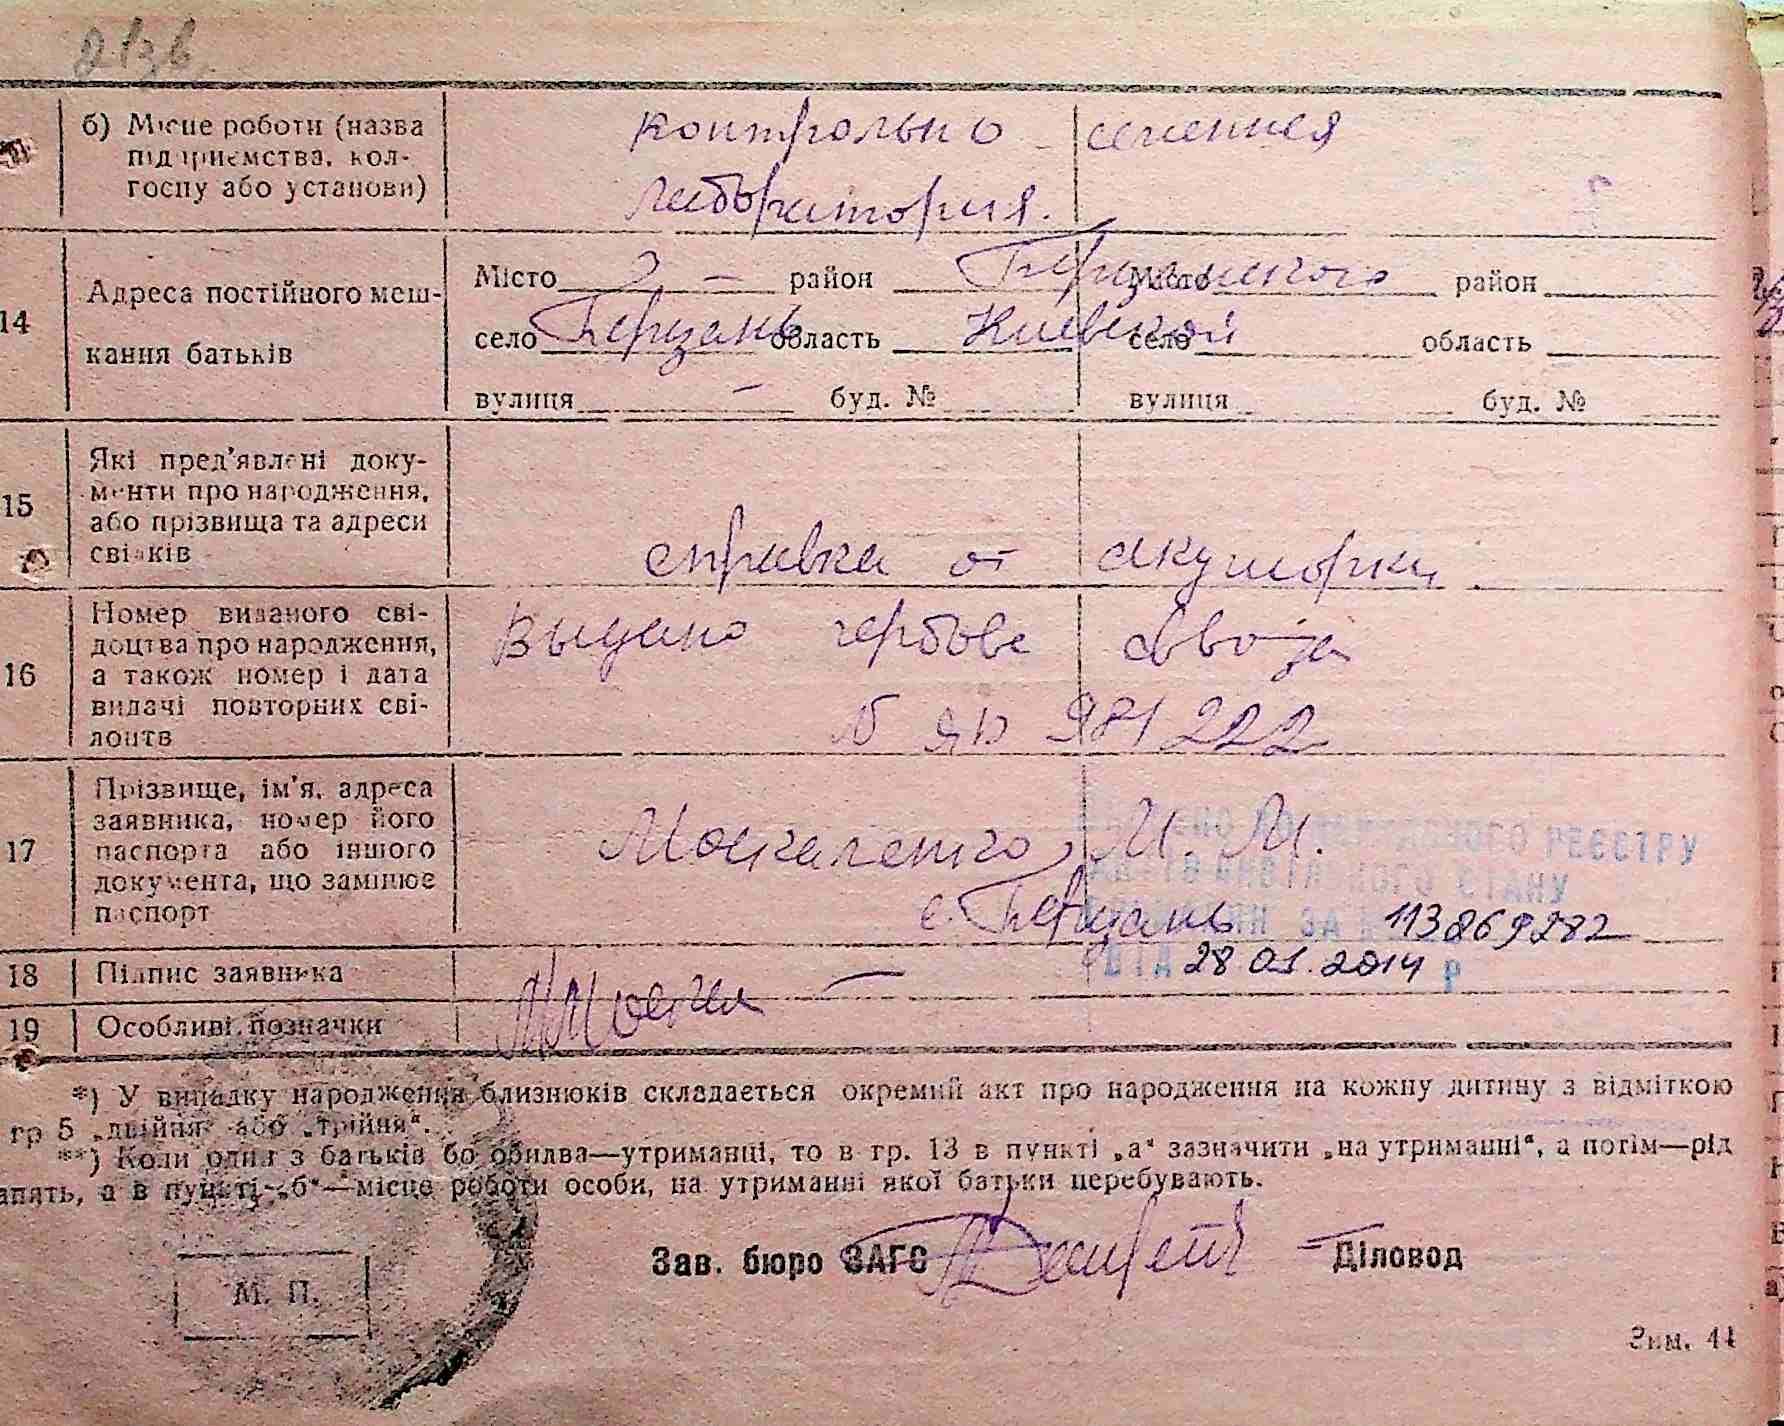 213в
б) Місце роботи (назва
підприємства, кол-
госпу або установи)
контрольно семенная
лаборатория.
14
Адреса постійного меш-
кання батьків
Місто — район район
село Березань область Киевской село область
вулиця — буд. № вулиця буд. №
15
Які пред'явлені доку-
менти про народження,
або прізвища та адреси
свідків
справка от акушорки
16
Номер виданого сві-
доцтва про народження,
а також номер і дата
видачі повторних сві-
доцтв
Выдано гербове
981222
17
Прізвище, ім'я, адреса
заявника, номер його
паспорта або іншого
документа, що замінює
паспорт
Москаленко М. М.
с. Березань
РЕЄСТРУ
СТАНУ
ЗА № 113869282
ВІД 28 01. 2014 р
18 Підпис заявника
19 Особливі позначки
*) У випадку народження близнюків складається окремий акт про народження на кожну дитину з відміткою
гр 5 „двійня“ або „трійня“.
**) Коли один з батьків бо обидва—утриманці, то в гр. 13 в пункті „а“ зазначити „на утриманні“, а потім—рід
апять, а в пункті—„б“—місце роботи особи, на утриманні якої батьки перебувають.
Зав. бюро ЗАГС Діловод
М. П.
Зам. 44